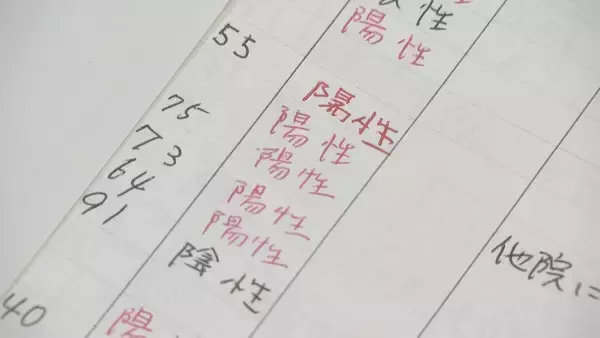 性
陽性
55 陽性
75 陽性
73 陽性
64 陽性
91 陽性
陰性
陽
40
他院に